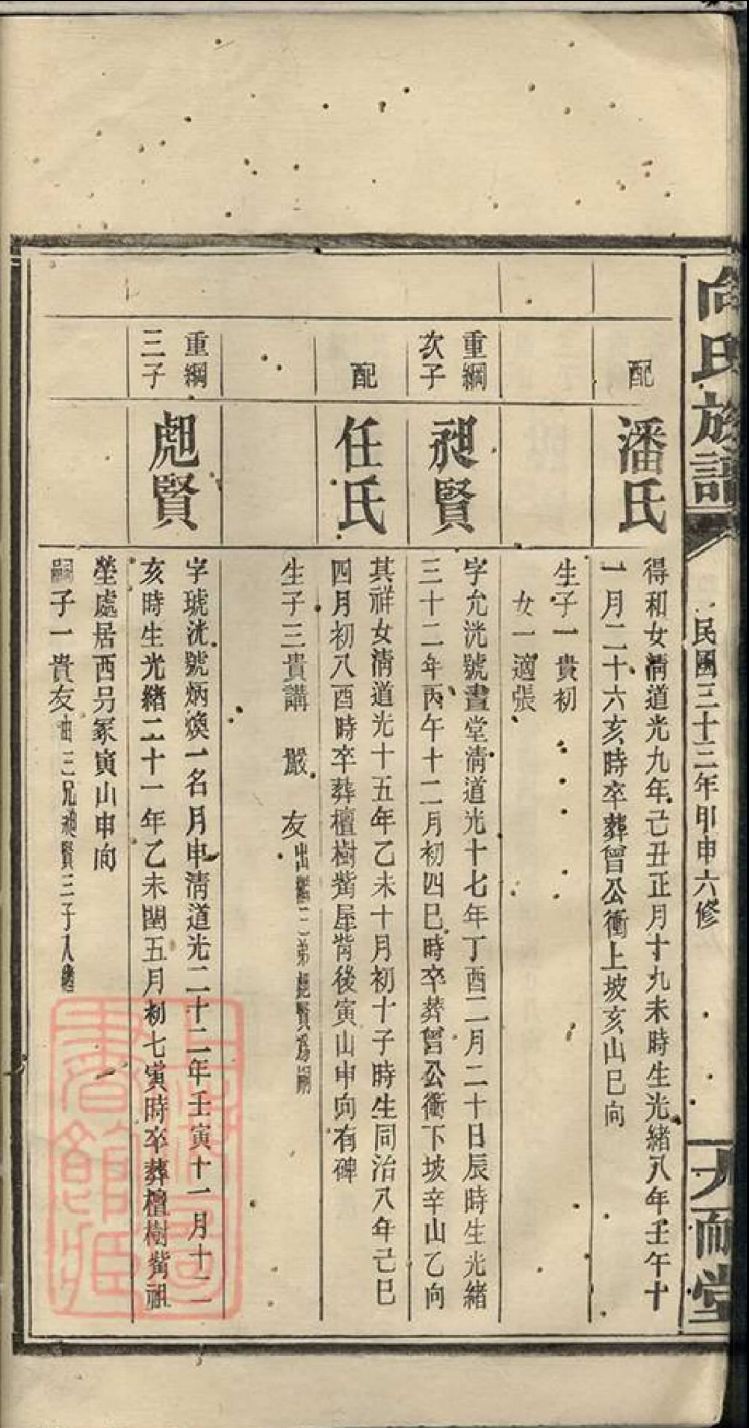 氏族譜
民國三十三年甲申六修
大而堂
配
潘氏
得和女清道光九年己丑正月十九未時生光緒八年壬午十
一月二十六亥時卒葬曾公衝上坡亥山巳向
生子一貴初
女一適張
重綱
次子
昶賢
字允洸號晝堂清道光十七年丁酉二月二十日辰時生光緒
三十二年丙午十二月初四巳時卒葬曾公衝下坡辛山乙向
配
任氏
其祥女清道光十五年乙未十月初十子時生同治八年己巳
四月初八酉時卒葬檀樹嘴屋背後寅山申向有碑
生子三貴講 嚴 友出繼三弟賢為嗣
重綱
三子
賢
字琥洸號炳煥一名月申清道光二十二年壬寅十一月十二
亥時生光緒二十一年乙未閏五月初七寅時卒葬檀樹嘴祖
塋處居西另冢寅山申向
嗣子一貴友由三兄昶賢三子入繼